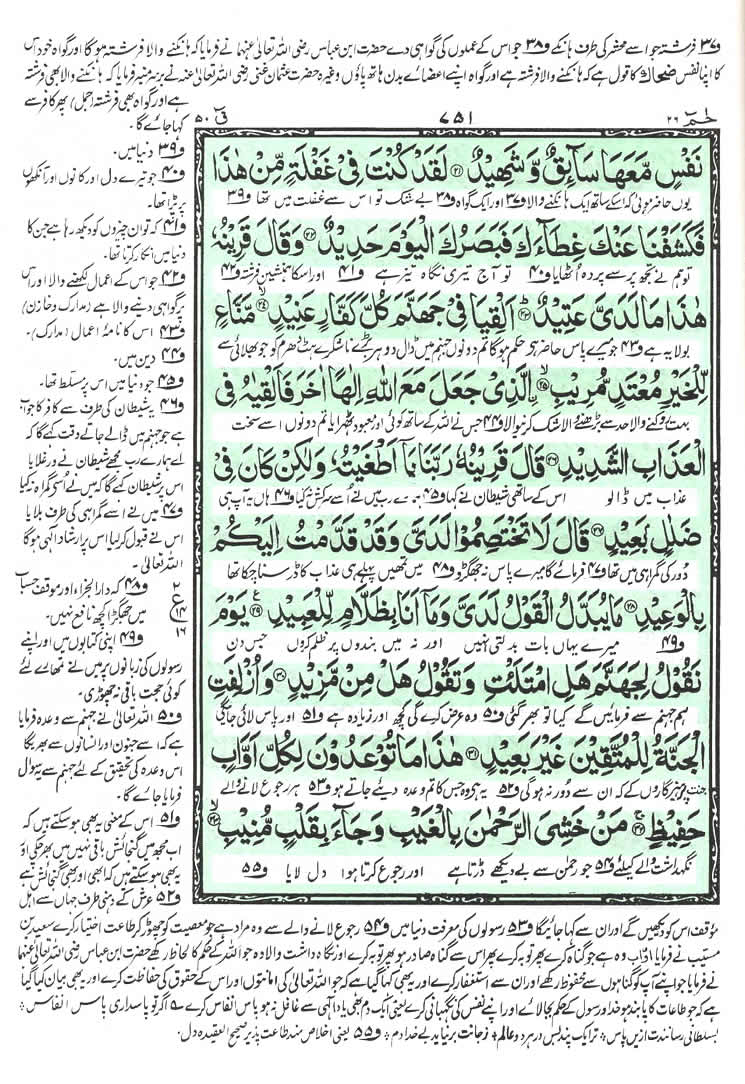 ف۳۷ فرشتہ جو اسے محشر کی طرف ہانکے ف۳۸ جو اس کے عملوں کی گواہی دے حضرت ابن عباس رضی اللہ تعالیٰ عنہما نے فرمایا کہ ہانکنے والا فرشتہ ہوگا اور گواہ خود اس
کا اپنا نفس ضحاک کا قول ہے کہ ہانکنے والا فرشتہ ہے اور گواہ اپنے اعضائے بدن ہاتھ پاؤں وغیرہ حضرت عثمان غنی رضی اللہ تعالیٰ عنہ نے برسر منبر فرمایا کہ ہانکنے والا بھی فرشتہ
ہے اور گواہ بھی فرشتہ (جمل) پھر کافر سے
کہا جائے گا۔
حٰمٓ ۲۶
۷۵۱
قٓ ۵۰
نَفْسٍ مَّعَهَا سَآئِقٌ وَّشَهِیْدٌ ﴿۲۱﴾ لَقَدْ كُنْتَ فِیْ غَفْلَةٍ مِّنْ هٰذَا
یوں حاضر ہوئی کہ اسکے ساتھ ایک ہانکنے والا ف۳۷ اور ایک گواہ ف۳۸ بے شک تو اس سے غفلت میں تھا ف۳۹
فَكَشَفْنَا عَنْكَ غِطَآءَكَ فَبَصَرُكَ الْیَوْمَ حَدِیْدٌ ﴿۲۲﴾ وَقَالَ قَرِیْنُهٗ
تو ہم نے تجھ پر سے پردہ اٹھایا ف۴۰ تو آج تیری نگاہ تیز ہے ف۴۱ اور اسکا ہمنشین فرشتہ ف۴۲
هٰذَا مَا لَدَیَّ عَتِیْدٌ ﴿۲۳﴾ اَلْقِیَا فِیْ جَهَنَّمَ كُلَّ كَفَّارٍ عَنِیْدٍ ﴿۲۴﴾ مَّنَّاعٍ
بولا یہ ہے ف۴۳ جو میرے پاس حاضر ہے حکم ہوگا تم دونوں جہنم میں ڈال دو ہر بڑے ناشکرے ہٹ دھرم کو جو بھلائی سے
لِّلْخَیْرِ مُعْتَدٍ مُّرِیْبِ ﴿۲۵﴾ الَّذِیْ جَعَلَ مَعَ اللّٰهِ اِلٰهًا اٰخَرَ فَاَلْقِیٰهُ فِی
بہت روکنے والا حد سے بڑھنے والا شک کرنیوالا ف۴۴ جس نے اللہ کے ساتھ کوئی اور معبود ٹھہرایا تم دونوں اسے سخت
الْعَذَابِ الشَّدِیْدِ ﴿۲۶﴾ قَالَ قَرِیْنُهٗ رَبَّنَا مَاۤ اَطْغَیْتُهٗ وَلٰكِنْ كَانَ فِیْ
عذاب میں ڈالو اس کے ساتھی شیطان نے کہا ف۴۵ ہمارے رب میں نے اسے سرکش نہ کیا ف۴۶ ہاں یہ آپ ہی
ضَلٰلٍۭ بَعِیْدٍ ﴿۲۷﴾ قَالَ لَا تَخْتَصِمُوْا لَدَیَّ وَقَدْ قَدَّمْتُ اِلَیْكُمْ
دور کی گمراہی میں تھا ف۴۷ فرمائے گا میرے پاس نہ جھگڑو ف۴۸ میں تمھیں پہلے ہی عذاب کا ڈر سنا چکا تھا
بِالْوَعِیْدِ ﴿۲۸﴾ مَا یُبَدَّلُ الْقَوْلُ لَدَیَّ وَمَاۤ اَنَا بِظَلَّامٍ لِّلْعَبِیْدِ ﴿۲۹﴾ یَوْمَ
ف۴۹ میرے یہاں بات بدلتی نہیں اور نہ میں بندوں پر ظلم کروں جس دن
نَقُوْلُ لِجَهَنَّمَ هَلِ امْتَلَئْتِ وَتَقُوْلُ هَلْ مِنْ مَّزِیْدٍ ﴿۳۰﴾ وَاُزْلِفَتِ
ہم جہنم سے فرمائیں گے کیا تو بھر گئی ف۵۰ وہ عرض کرے گی کچھ اور زیادہ ہے ف۵۱ اور پاس لائی جائے گی
الْجَنَّةُ لِلْمُتَّقِیْنَ غَیْرَ بَعِیْدٍ ﴿۳۱﴾ هٰذَا مَا تُوْعَدُوْنَ لِكُلِّ اَوَّابٍ
جنت پرہیزگاروں کے کہ ان سے دور نہ ہوگی ف۵۲ یہ ہے وہ جس کا تم وعدہ دیئے جاتے ہو ف۵۳ ہر رجوع لانے والے
حَفِیْظٍ ﴿۳۲﴾ مَنْ خَشِیَ الرَّحْمٰنَ بِالْغَیْبِ وَجَآءَ بِقَلْبٍ مُّنِیْبِ ﴿۳۳﴾
نگہداشت والے کیلئے ف۵۴ جو رحمٰن سے بے دیکھے ڈرتا ہے اور رجوع کرتا ہوا دل لایا ف۵۵
ف۳۹ دنیا میں۔
ف۴۰ جو تیرے دل اور کانوں اور آنکھوں
پر پڑا تھا۔
ف۴۱ کہ تو ان چیزوں کو دیکھ رہا ہے جن کا
دنیا میں انکار کرتا تھا۔
ف۴۲ جو اس کے اعمال لکھنے والا اور اس
پر گواہی دینے والا ہے (مدارک و خازن)
ف۴۳ اس کا نامۂ اعمال (مدارک)۔
ف۴۴ دین میں۔
ف۴۵ جو دنیا میں اس پر مسلط تھا۔
ف۴۶ یہ شیطان کی طرف سے کافر کا جواب
ہے جو جہنم میں ڈالے جاتے وقت کہے گا کہ
اے ہمارے رب مجھے شیطان نے ورغلایا
اس پر شیطان کہے گا کہ میں نے اسے گمراہ نہ کیا
ف۴۷ میں نے اسے گمراہی کی طرف بلایا
اس نے قبول کرلیا اس پر ارشاد الٰہی ہوگا
اللہ تعالیٰ۔
ف۴۸ کہ دار الجزاء اور موقف حساب
میں جھگڑا کچھ نافع نہیں۔
۲
ع
۱۴
۱۶
ف۴۹ اپنی کتابوں میں اور اپنے
رسولوں کی زبانوں پر میں نے تمھارے لئے
کوئی حجت باقی نہ چھوڑی۔
ف۵۰ اللہ تعالیٰ نے جہنم سے وعدہ فرمایا
ہے کہ اسے جنوں اور انسانوں سے بھرے گا
اس وعدہ کی تحقیق کے لئے جہنم سے یہ سوال
فرمایا جائے گا۔
ف۵۱ اس کے معنی یہ بھی ہوسکتے ہیں کہ
اب مجھ میں گنجائش باقی نہیں میں بھر چکی اور
یہ بھی ہوسکتے ہیں کہ ابھی اور بھی گنجائش ہے
ف۵۲ عرش کے دہنی طرف جہاں سے اہل
موقف اس کو دیکھیں گے اور ان سے کہا جائیگا ف۵۳ رسولوں کی معرفت دنیا میں ف۵۴ رجوع لانے والے سے وہ مراد ہے جو معصیت کو چھوڑ کر طاعت اختیار کرے سعید بن
مسیّب نے فرمایا اوّاب وہ ہے جو گناہ کرے پھر توبہ کرے پھر اس سے گناہ صادر ہو پھر توبہ کرے اور نگاہ داشت والا وہ جو اللہ کے حکم کا لحاظ رکھے حضرت ابن عباس رضی اللہ تعالیٰ عنہما
نے فرمایا جو اپنے آپ کو گناہوں سے محفوظ رکھے اور ان سے استغفار کرے اور یہ بھی کہا گیا ہے کہ جو اللہ تعالیٰ کی امانتوں اور اس کے حقوق کی حفاظت کرے اور یہ بھی بیان کیا گیا
ہے کہ جو طاعات کا پابند ہو خدا و رسول کے حکم بجالائے اور اپنے نفس کی نگہبانی کرے یعنی ایک دم بھی یاد الٰہی سے غافل نہ ہو پاس انفاس کرے اگر تو پاسداری پاس انفاس
بسلطانی رسانندت ازیں پاس ترا یک پند بس در ہر دو عالم زجانت بر نیاید بے خدا دم ف۵۵ یعنی اخلاص مند طاعت پذیر صحیح العقیدہ دل۔